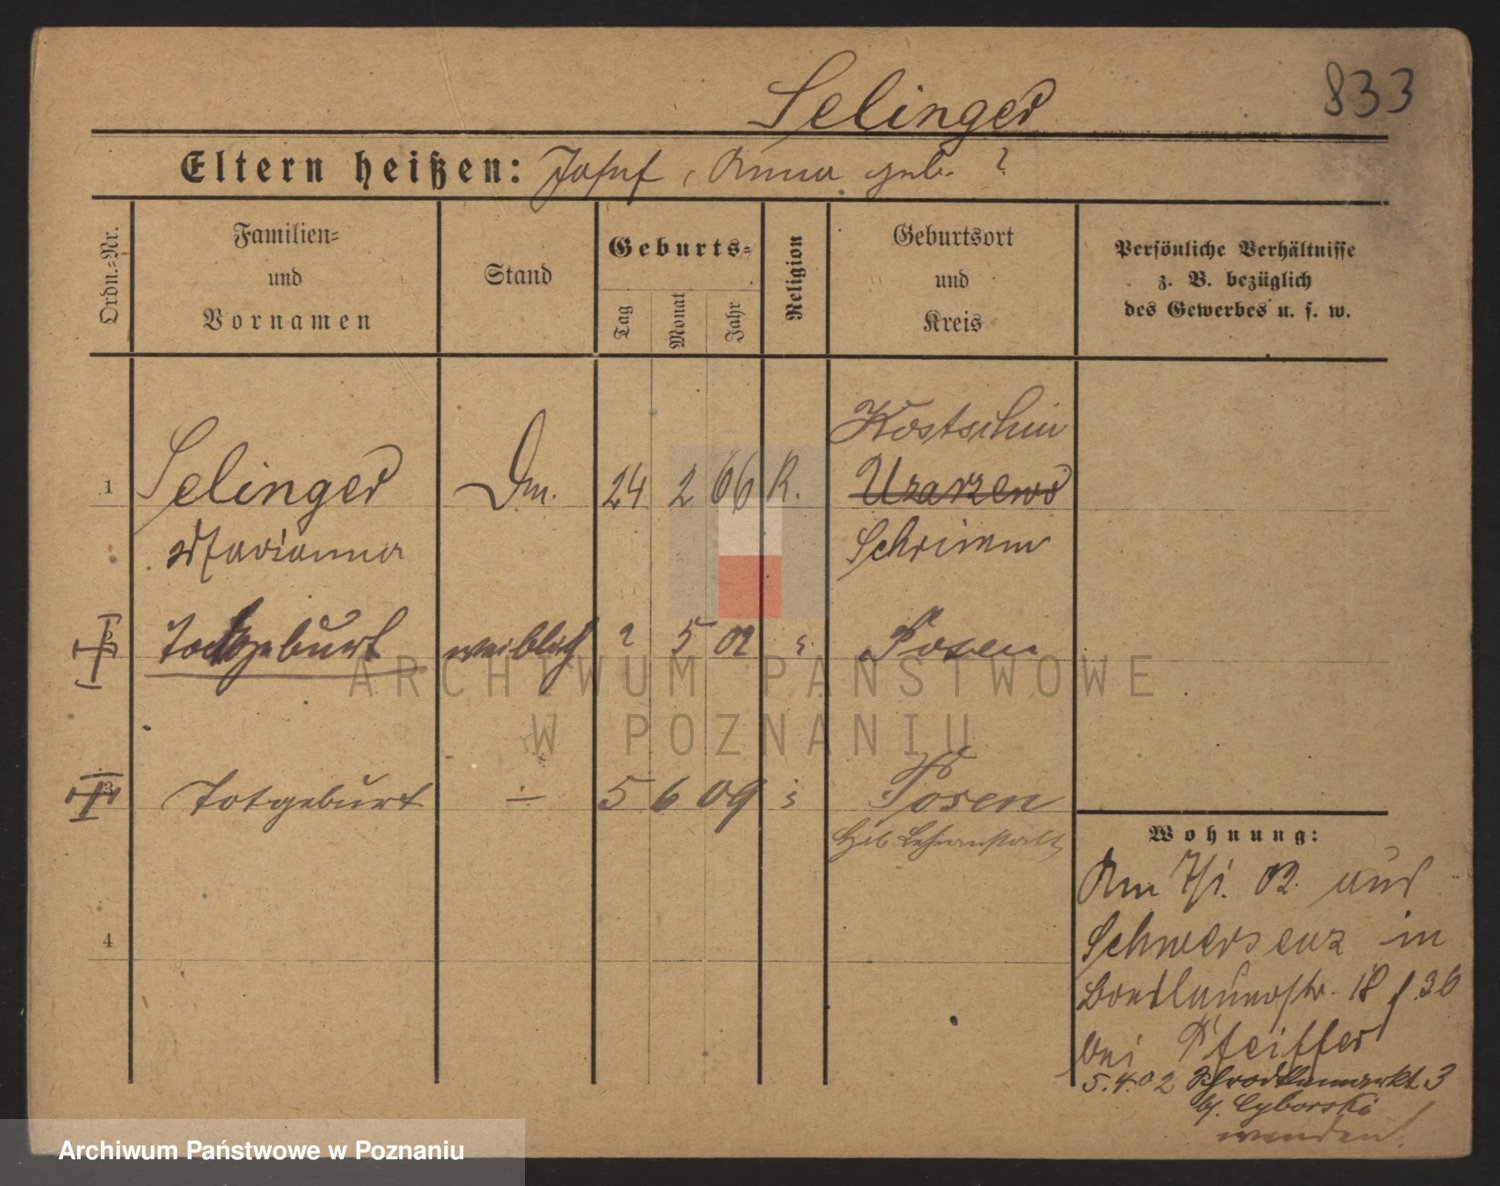 833
Selinger
Eltern heißen: Josef, Anna geb. ?
Ordn.-Nr.
Familien-
und
Vornamen
Stand
Geburts-
Tag
Monat
Jahr
Religion
Geburtsort
und
Kreis
Persönliche Verhältnisse
z. B. bezüglich
des Gewerbes u. s. w.
Kostschin
1 Selinger Dm. 24 2 66 R. Uzarzewo
Marianna Schrimm
2 Totgeburt weiblich ? 5 02 Posen
3 Totgeburt ÷ 5 6 09 Posen
Heb. Lehranstalt
4
Wohnung:
Am 7/1. 02. aus
Schwersenz in
18 36
bei Pfeiffer
5.4.02 Schrodkamarkt 3
b/. Cyborski
wenden!
ARCHIWUM PAŃSTWOWE
W POZNANIU
Archiwum Państwowe w Poznaniu